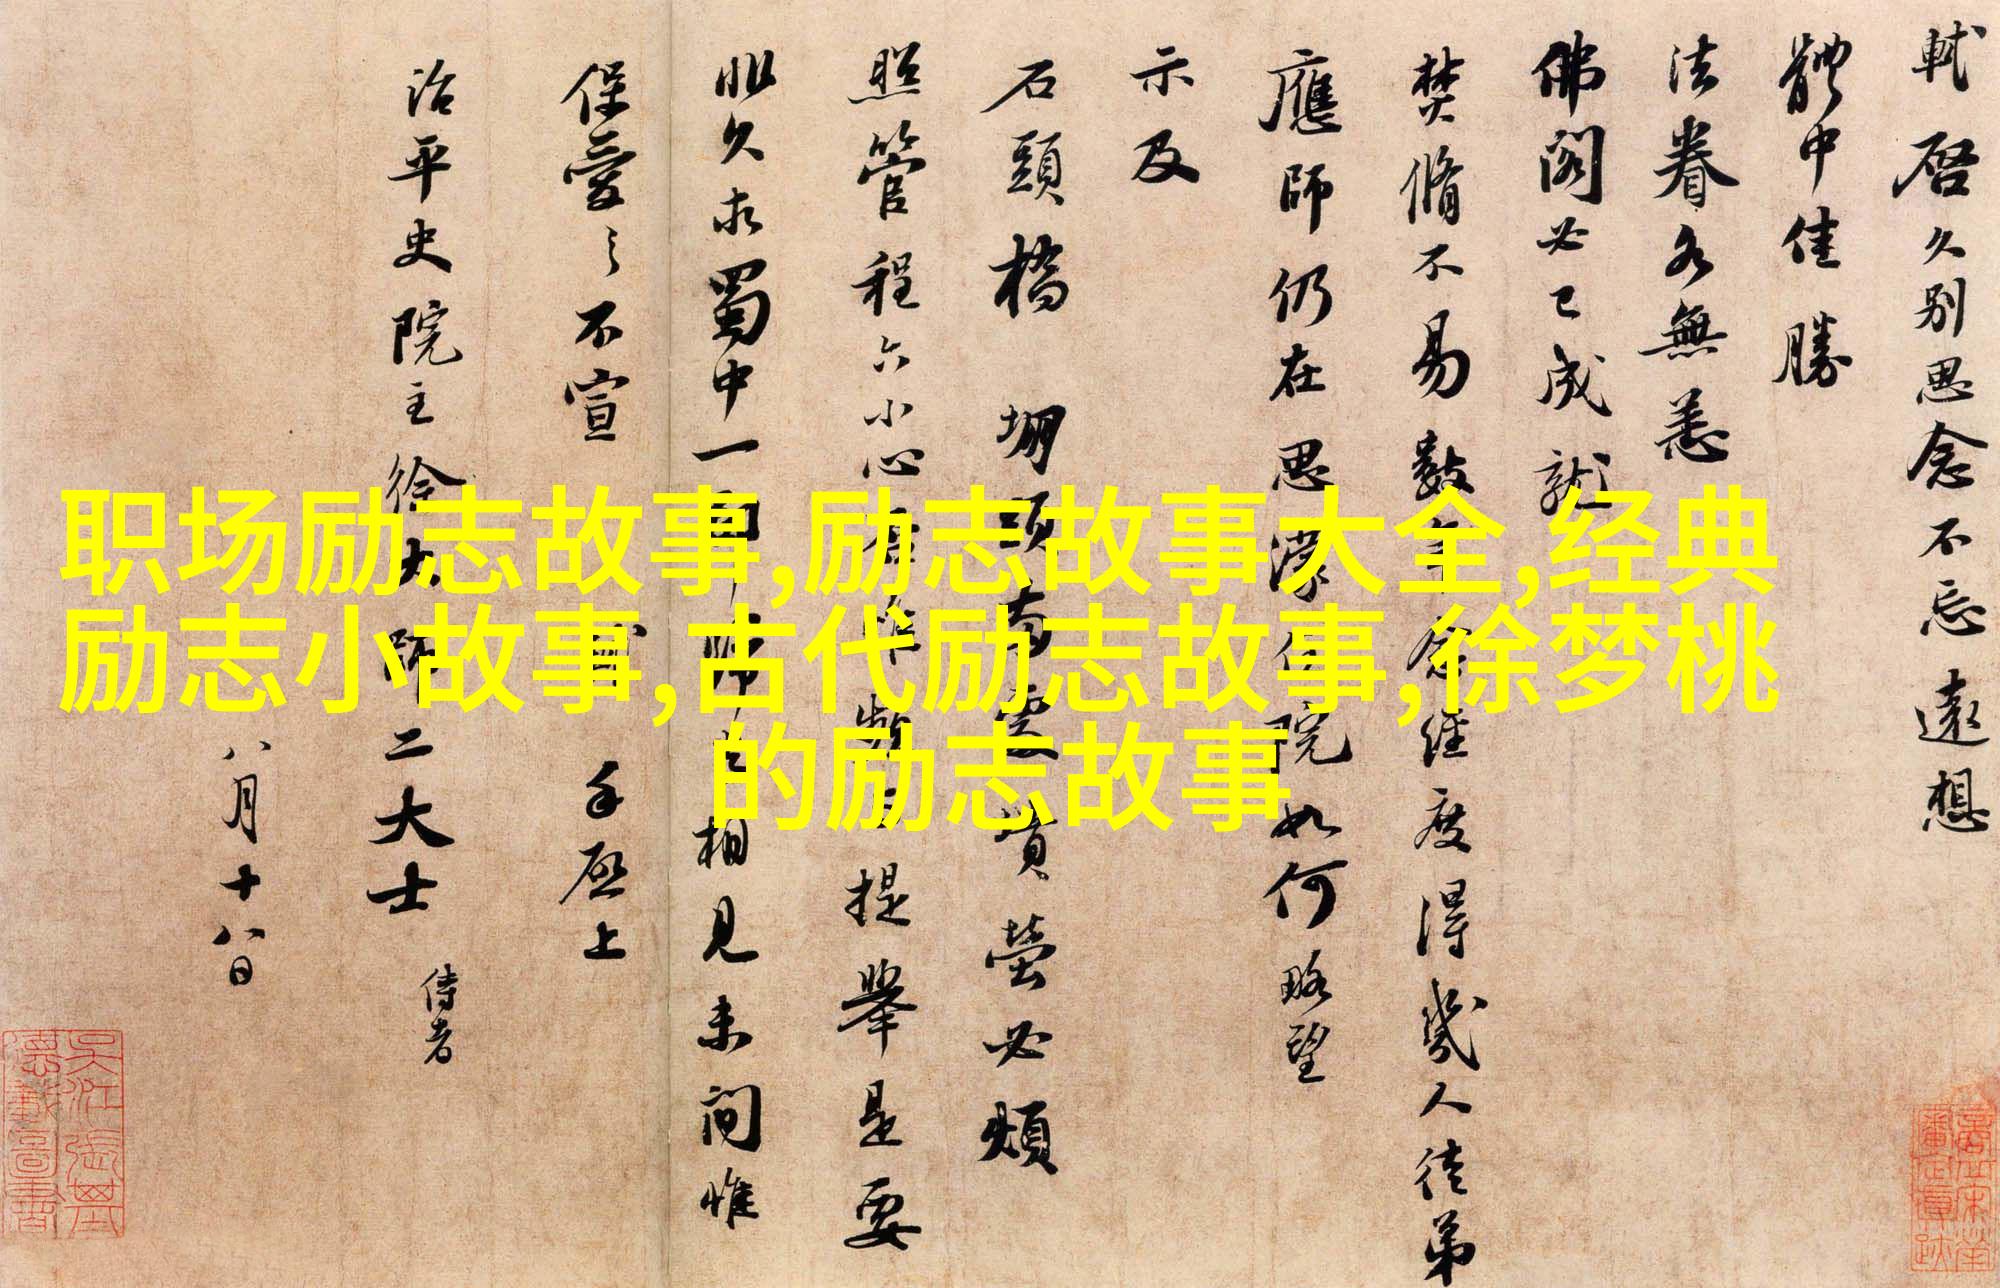 軾啓久别思念不忘遠想
體中佳勝
法眷各無恙
佛閣必已成就
焚脩不易數年念經度得幾人徒弟
應師仍在思濛住院如何略望
示及
石頭橋 堋頭兩處墳塋必煩
照管程六小心否惟頻與提舉是要
非久求蜀中一郡歸去相見未間惟
保愛之不宣 軾手啓上
治平史院主徐大師二大士 侍者
八月十八日
职场励志故事,励志故事大全,经典
励志小故事,古代励志故事,徐梦桃
的励志故事